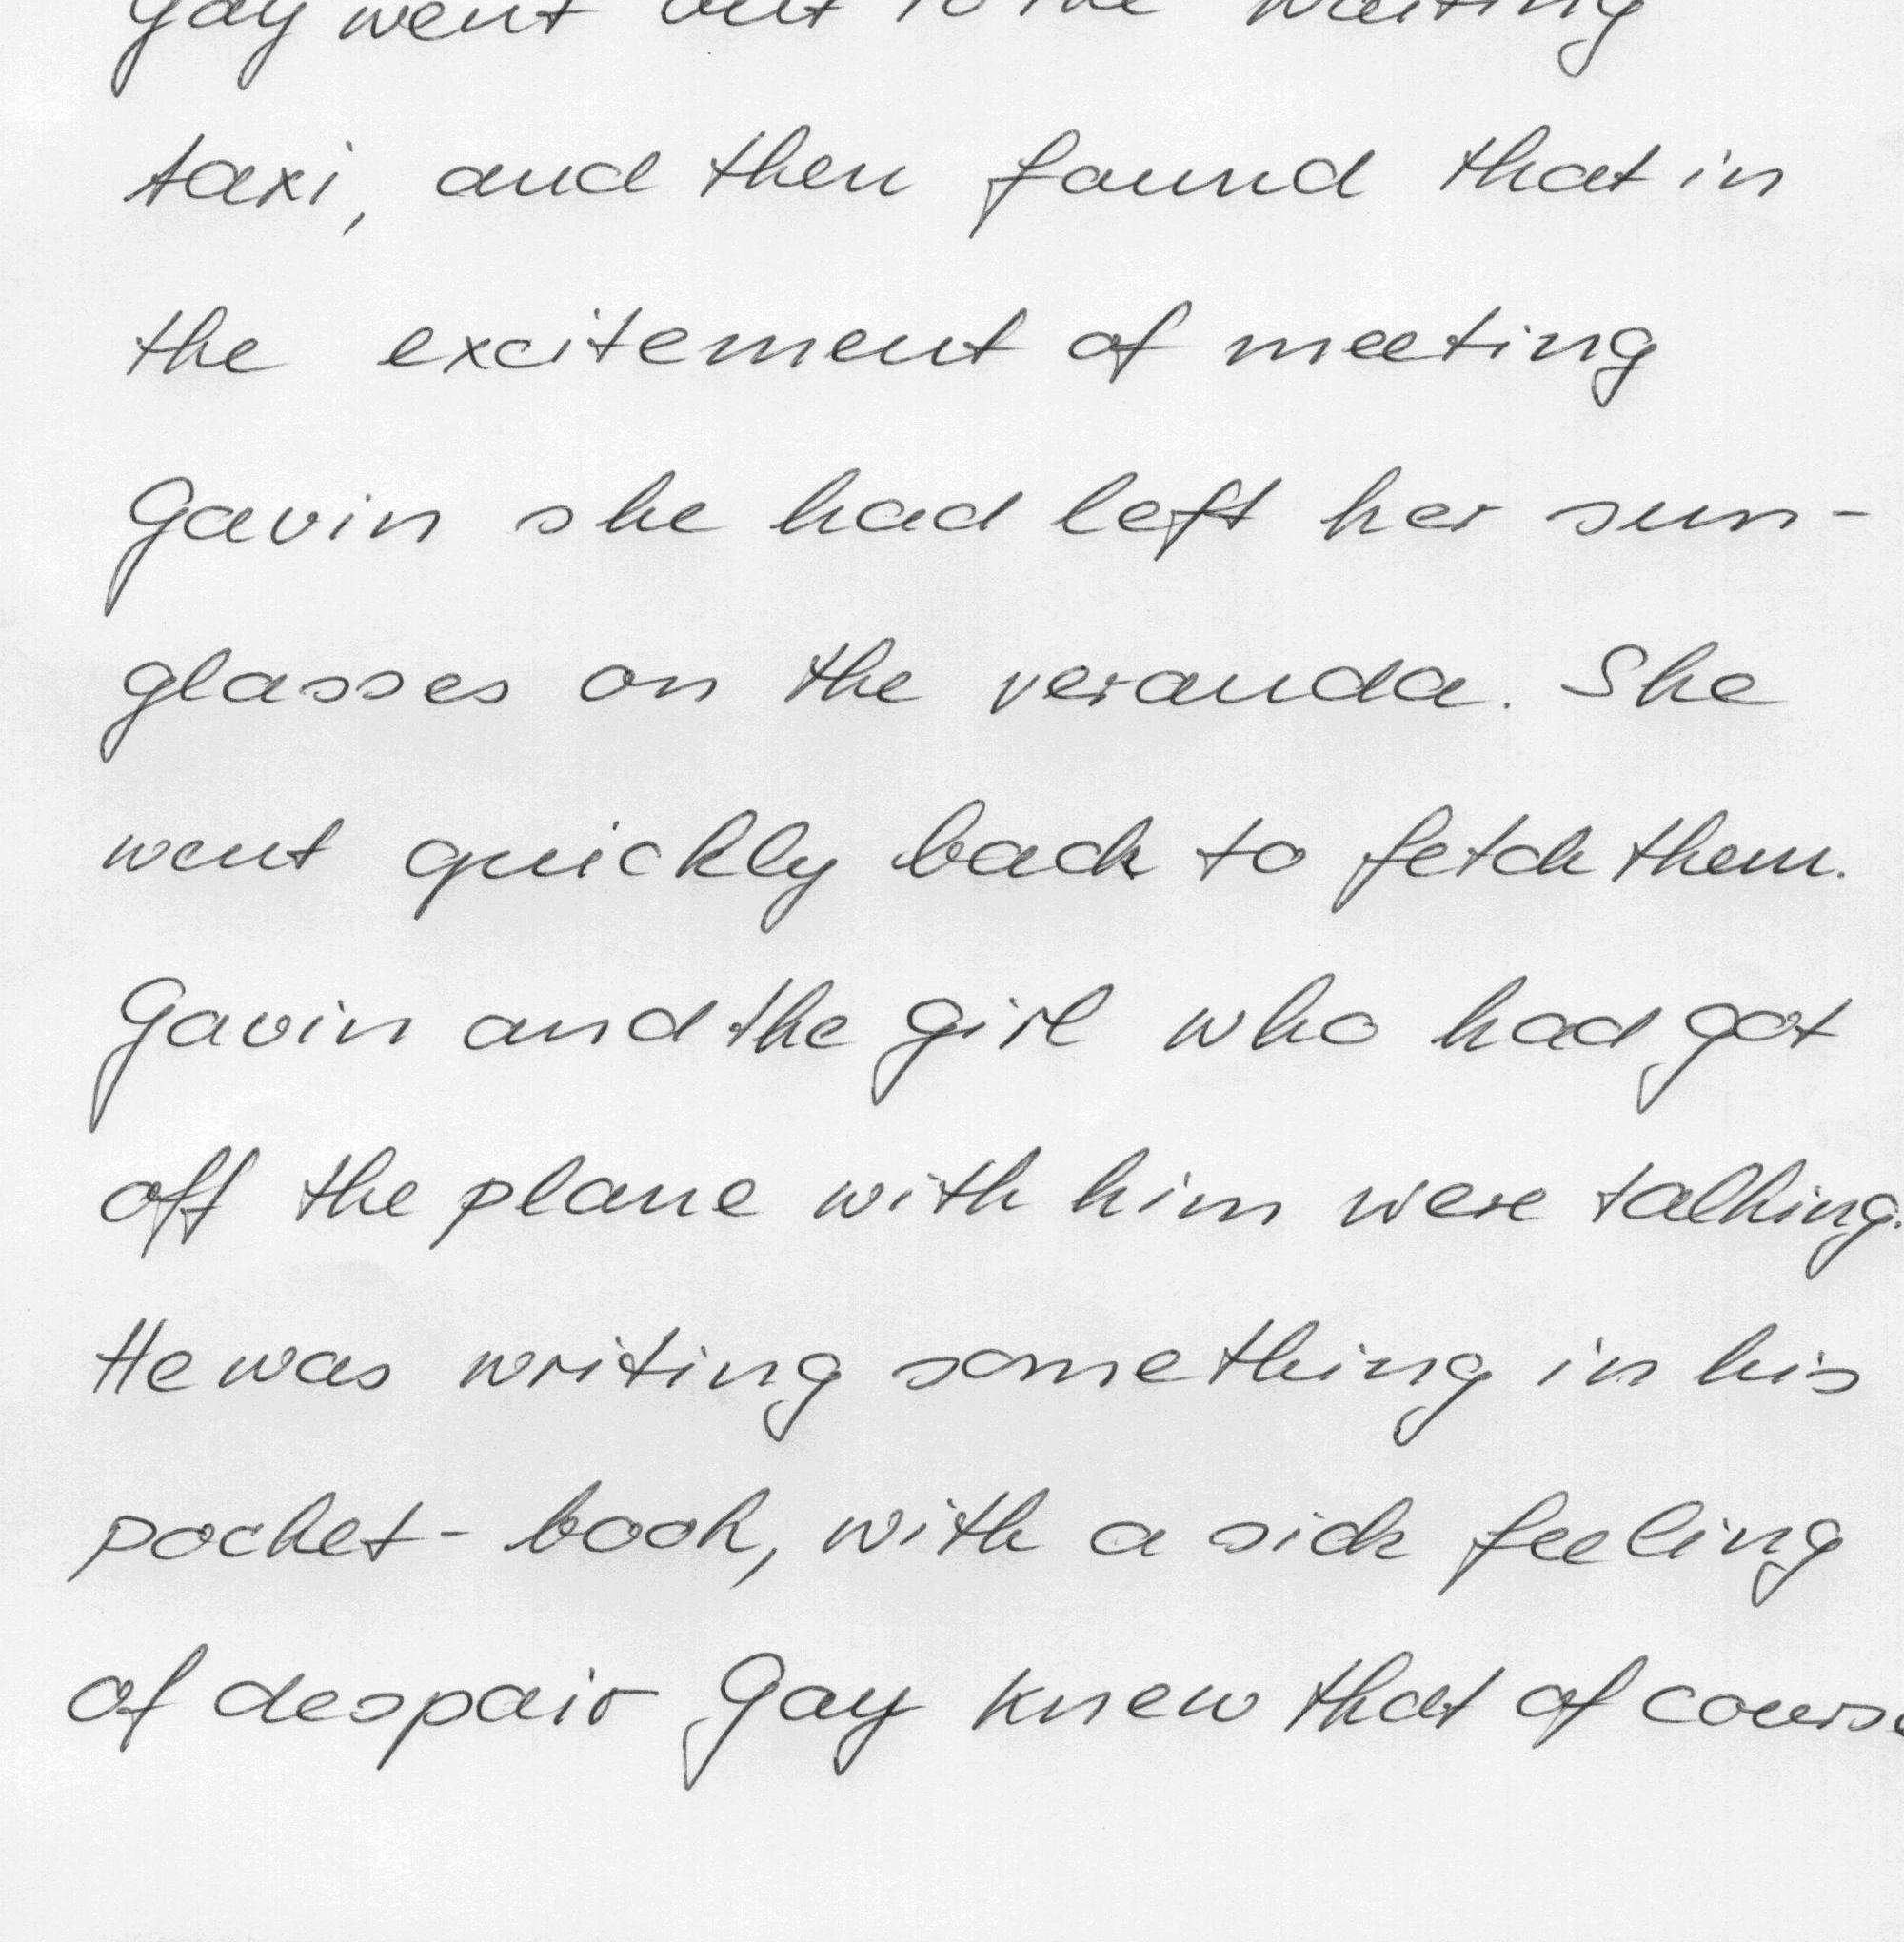 Gay went out to the waiting
taxi, and then found that in
the excitement of meeting
Gavin she had left her sun-
glasses on the veranda. She
went quickly back to fetch them.
Gavin and the girl who had got
off the plane with him were talking.
He was writing something in his
pocket-book, with a sick feeling
of despair Gay knew that of course